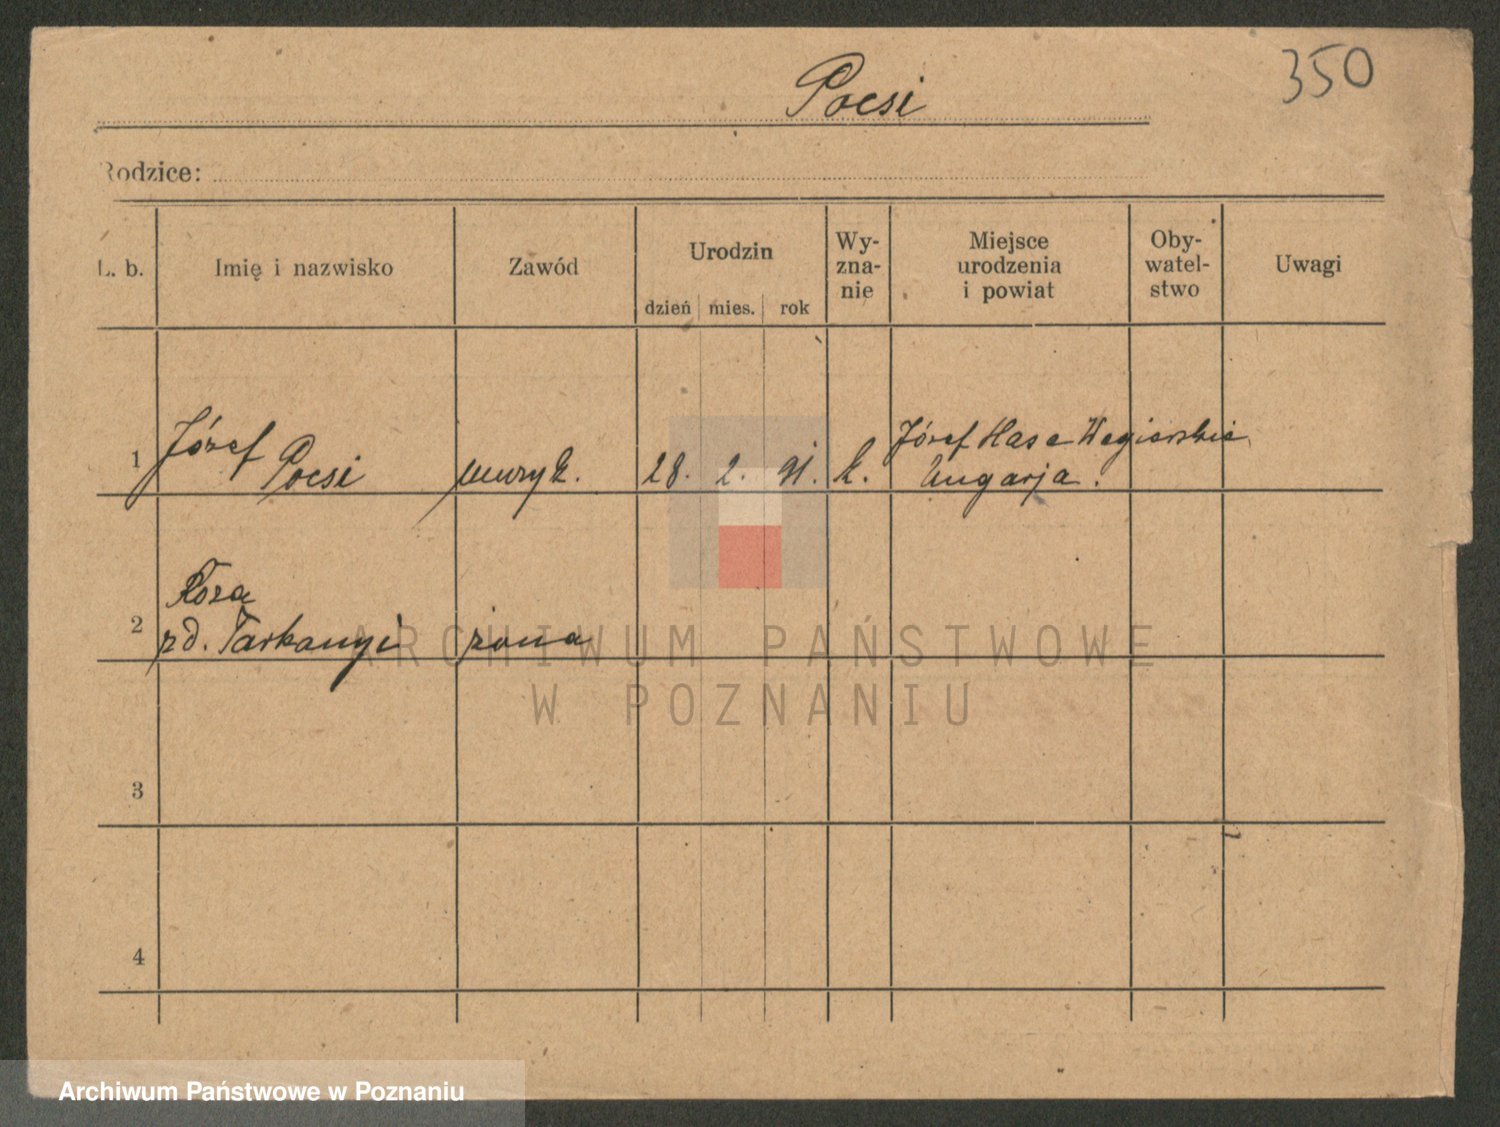 350
Pocsi
Rodzice:
L. b.
Imię i nazwisko
Zawód
Urodzin
dzień
mies.
rok
Wy-
zna-
nie
Miejsce
urodzenia
i powiat
Oby-
watel-
stwo
Uwagi
1
Józef
Pocsi
muzyk.
28. 2. 91.
k.
Józef Hasa Wegierskie
Ungarja.
2
Roza
zd. Tarkanyi
żona
3
4
ARCHIWUM PAŃSTWOWE
W POZNANIU
Archiwum Państwowe w Poznaniu